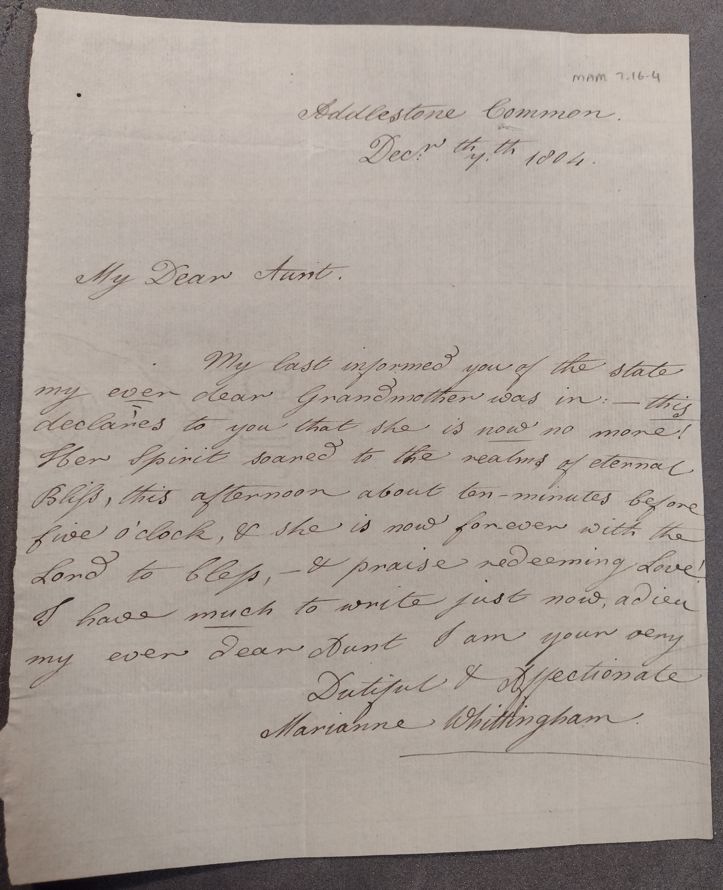 MAM 7.16.4
Addlestone Common.
Decr. th 7.th 1804.
My Dear Aunt.
My last informed you of the state
my ever dear Grandmother was in: — this
declares to you that she is now no more!
Her Spirit soared to the realms of eternal
Bliſs, this afternoon about ten-minutes before
five o'clock, & she is now for-ever with the
Lord to bleſs, — & praise redeeming Love!
I have much to write just now, adieu
my ever dear Aunt I am your very
Dutiful & Affectionate
Marianne Whittingham.